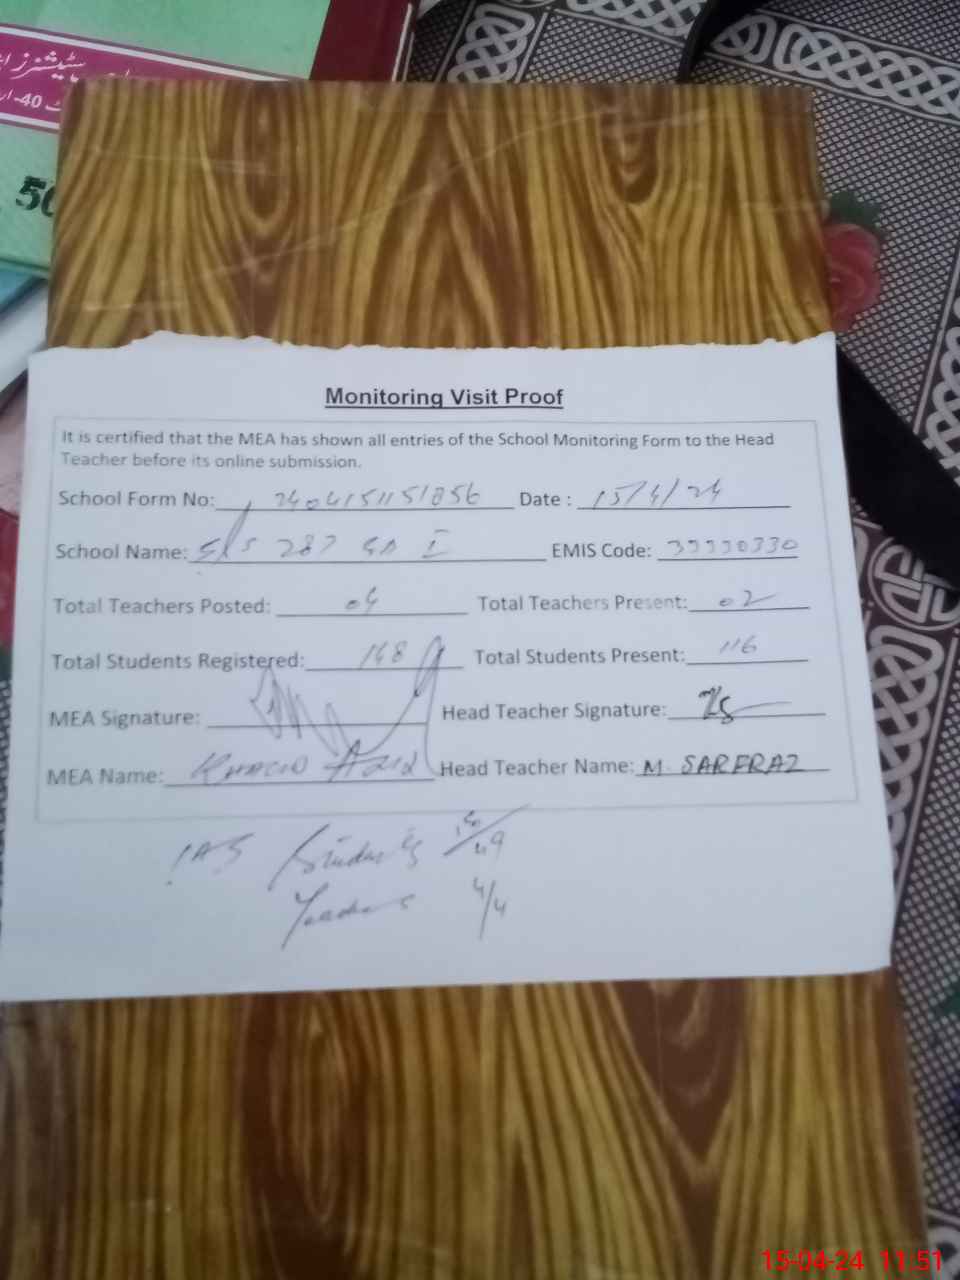 50
Monitoring Visit Proof
It is certified that the MEA has shown all entries of the School Monitoring Form to the Head
Teacher before its online submission.
School Form No: 2404151151856 Date : 15/4/24
School Name: 287 GD I EMIS Code: 39330330
Total Teachers Posted: 04 Total Teachers Present: 02
Total Students Registered: 148 Total Students Present: 116
MEA Signature: Head Teacher Signature:
MEA Name: Head Teacher Name: M. SARFRAZ
Students
Teachers 4/4
15-04-24 11:51